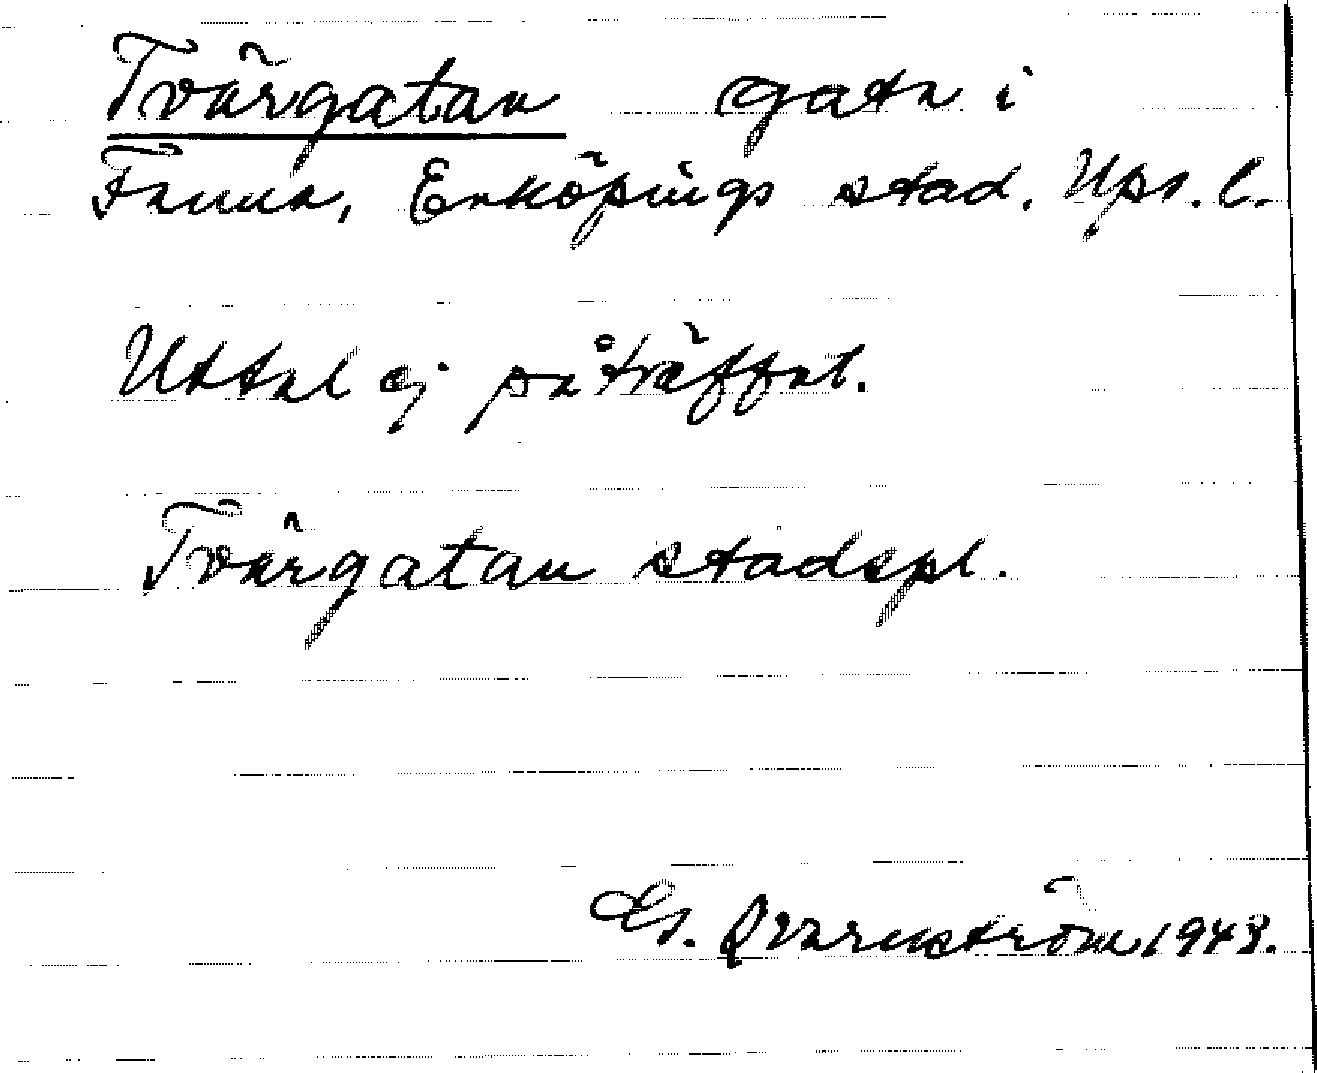 Tvärgatan gata i
Fanna, Enköpings stad. Ups. l.
Uttal ej påträffat.
Tvärgatan stadspl.
G. Qvarnström 1943.